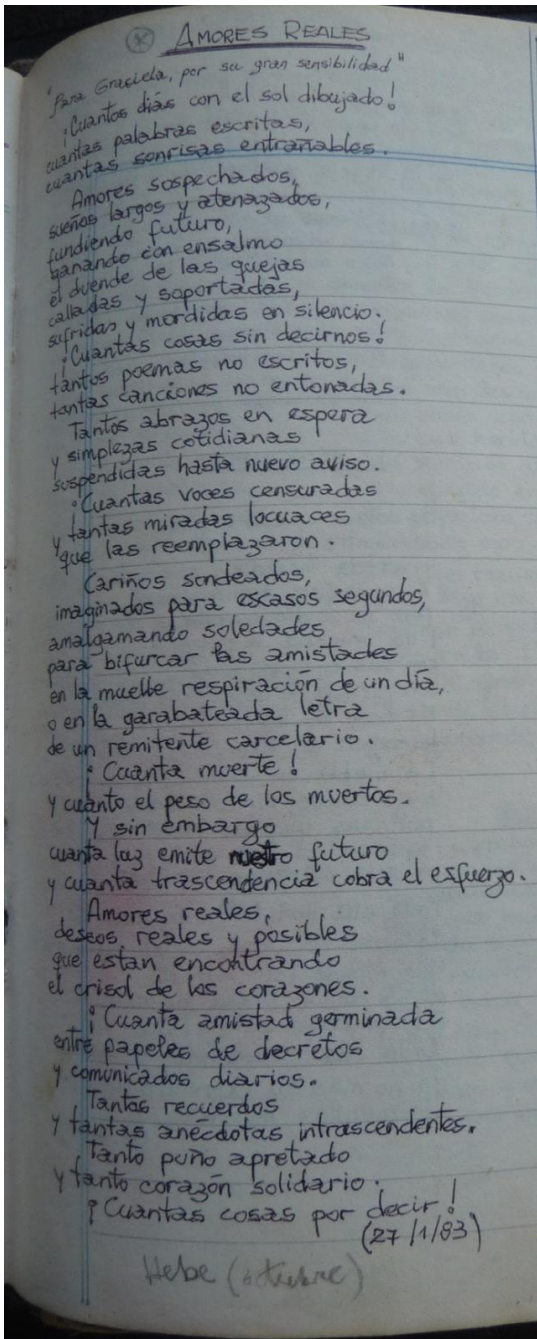 * AMORES REALES
"Para Graciela, por su gran sensibilidad"
¡Cuantos días con el sol dibujado!
cuantas palabras escritas,
cuantas sonrisas entrañables.
Amores sospechados,
sueños largos y atenazados,
fundiendo futuro,
ganando con ensalmo
el duende de las quejas
calladas y soportadas,
sufridas y mordidas en silencio.
¡Cuantas cosas sin decirnos!
tantos poemas no escritos,
tantas canciones no entonadas.
Tantos abrazos en espera
y simplezas cotidianas
suspendidas hasta nuevo aviso.
¡Cuantas voces censuradas
y tantas miradas locuaces
que las reemplazaron.
Cariños sondeados,
imaginados para escasos segundos,
amalgamando soledades
para bifurcar las amistades
en la muelle respiración de un día,
o en la garabateada letra
de un remitente carcelario.
¡Cuanta muerte!
y cuánto el peso de los muertos.
Y sin embargo
cuanta luz emite nuestro futuro
y cuanta trascendencia cobra el esfuerzo.
Amores reales,
deseos reales y posibles
que estan encontrando
el crisol de los corazones.
¡Cuanta amistad germinada
entre papeles de decretos
y comunicados diarios.
Tantos recuerdos
y tantas anécdotas intrascendentes.
Tanto puño apretado
y tanto corazón solidario.
¡Cuantas cosas por decir!
(27/1/83)
Hebe (octubre)